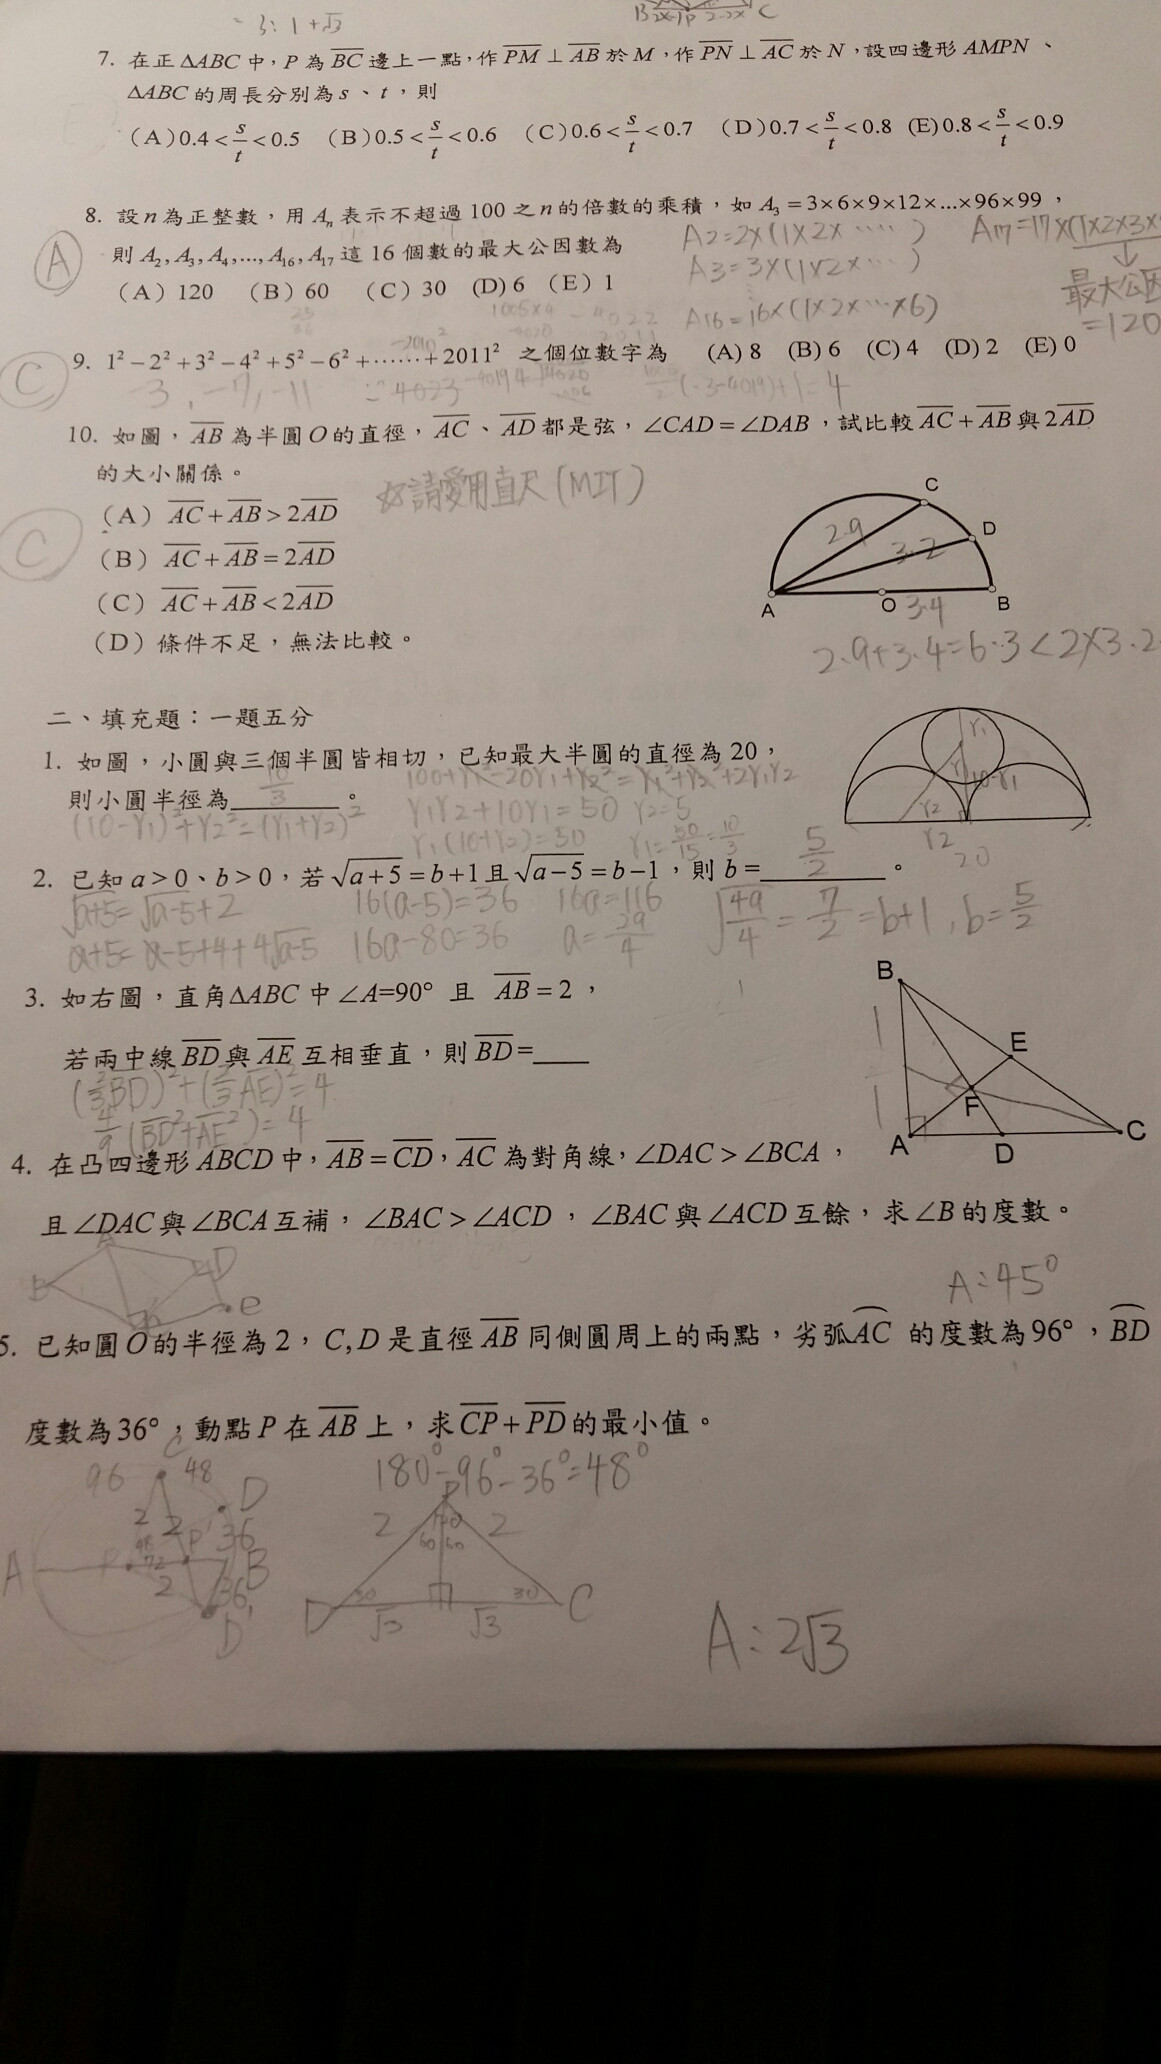 = 3:1+√3
B 2x-1 P 2-2x C
7. 在正ΔABC中，P為BC邊上一點，作PM⊥AB於M，作PN⊥AC於N，設四邊形AMPN、
ΔABC的周長分別為s、t，則
(A)0.4<s/t<0.5 (B)0.5<s/t<0.6 (C)0.6<s/t<0.7 (D)0.7<s/t<0.8 (E)0.8<s/t<0.9
8. 設n為正整數，用Aₙ表示不超過100之n的倍數的乘積，如A₃=3×6×9×12×...×96×99，
則A₂,A₃,A₄,...,A₁₆,A₁₇這16個數的最大公因數為
(A) 120 (B) 60 (C) 30 (D) 6 (E) 1
A
A2=2×(1×2×·····)
A3=3×(1×2×···)
A16=16×(1×2×···×6)
A17=17×(1×2×3×
↓
最大公因
=120
9. 1²−2²+3²−4²+5²−6²+……+2011² 之個位數字為 (A) 8 (B) 6 (C) 4 (D) 2 (E) 0
C
-3, -7, -11
(-3-4019)+1=4
10. 如圖，AB為半圓O的直徑，AC、AD都是弦，∠CAD=∠DAB，試比較AC+AB與2AD
的大小關係。
☆請愛用直尺(MIT)
(A) AC+AB>2AD
(B) AC+AB=2AD
(C) AC+AB<2AD
(D) 條件不足，無法比較。
C
C
D
A
O
B
2.9
3.2
3.4
2.9+3.4=6.3<2×3.2
二、填充題：一題五分
1. 如圖，小圓與三個半圓皆相切，已知最大半圓的直徑為20，
則小圓半徑為 10/3 。
(10-r₁)²+r₂²=(r₁+r₂)²
100+r₁²-20r₁+r₂²=r₁²+r₂²+2r₁r₂
r₁r₂+10r₁=50 r₂=5
r₁(10+r₂)=50 r₁=50/15=10/3
r₁
r₁
10-r₁
r₂
r₂
20
2. 已知a>0、b>0，若√(a+5)=b+1且√(a−5)=b−1，則b= 5/2 。
√(a+5)=√(a-5)+2
a+5=a-5+4+4√(a-5)
16(a-5)=36
16a-80=36
16a=116
a=29/4
√(49/4)=7/2=b+1, b=5/2
3. 如右圖，直角ΔABC中∠A=90° 且 AB=2，
若兩中線BD與AE互相垂直，則BD=____
(2/3BD)²+(2/3AE)²=4
4/9(BD²+AE²)=4
B
E
F
A
D
C
1
1
4. 在凸四邊形ABCD中，AB=CD，AC為對角線，∠DAC>∠BCA，
且∠DAC與∠BCA互補，∠BAC>∠ACD，∠BAC與∠ACD互餘，求∠B的度數。
A
B
D
e
A:45°
5. 已知圓O的半徑為2，C,D是直徑AB同側圓周上的兩點，劣弧AC 的度數為96°，BD
度數為36°，動點P在AB上，求CP+PD的最小值。
180°-96°-36°=48°
96
C
48
D
2
2
36
P'
A
P
72
2
B
36
D'
P
2
2
120
60
60
30
30
D
√3
√3
C
A:2√3